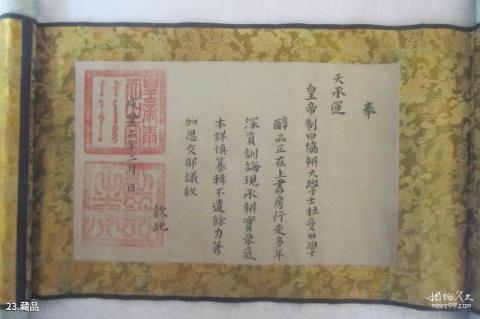 奉
天承運
皇帝制曰協辦大學士杜受田學
醇品正在上書房行走多年
深資訓誨現承辦實錄底
本詳慎纂輯不遺餘力著
加恩交部議敘
欽此
咸豐二年二月 日
23.藏品